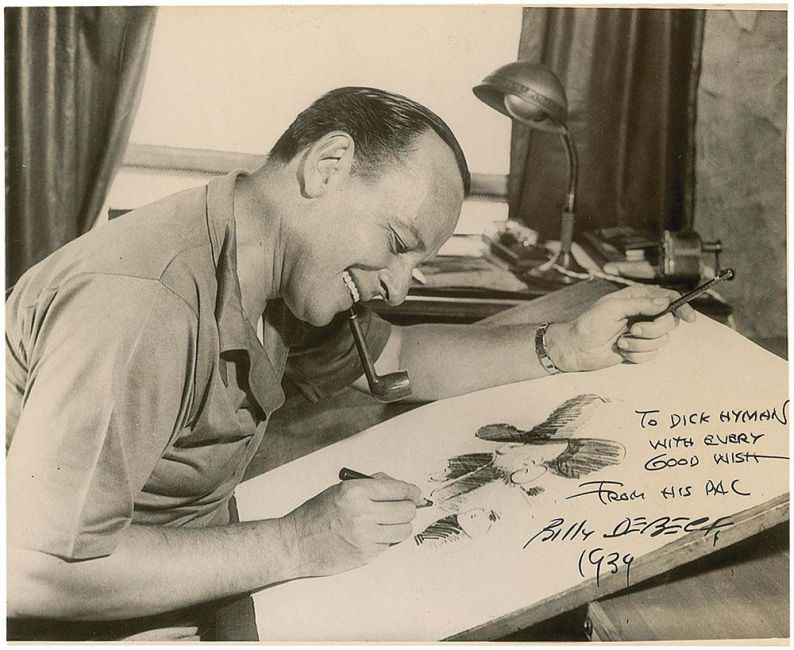 TO DICK HYMAN
WITH EVERY
GOOD WISH
FROM HIS PAL
Billy DEBECK
1939